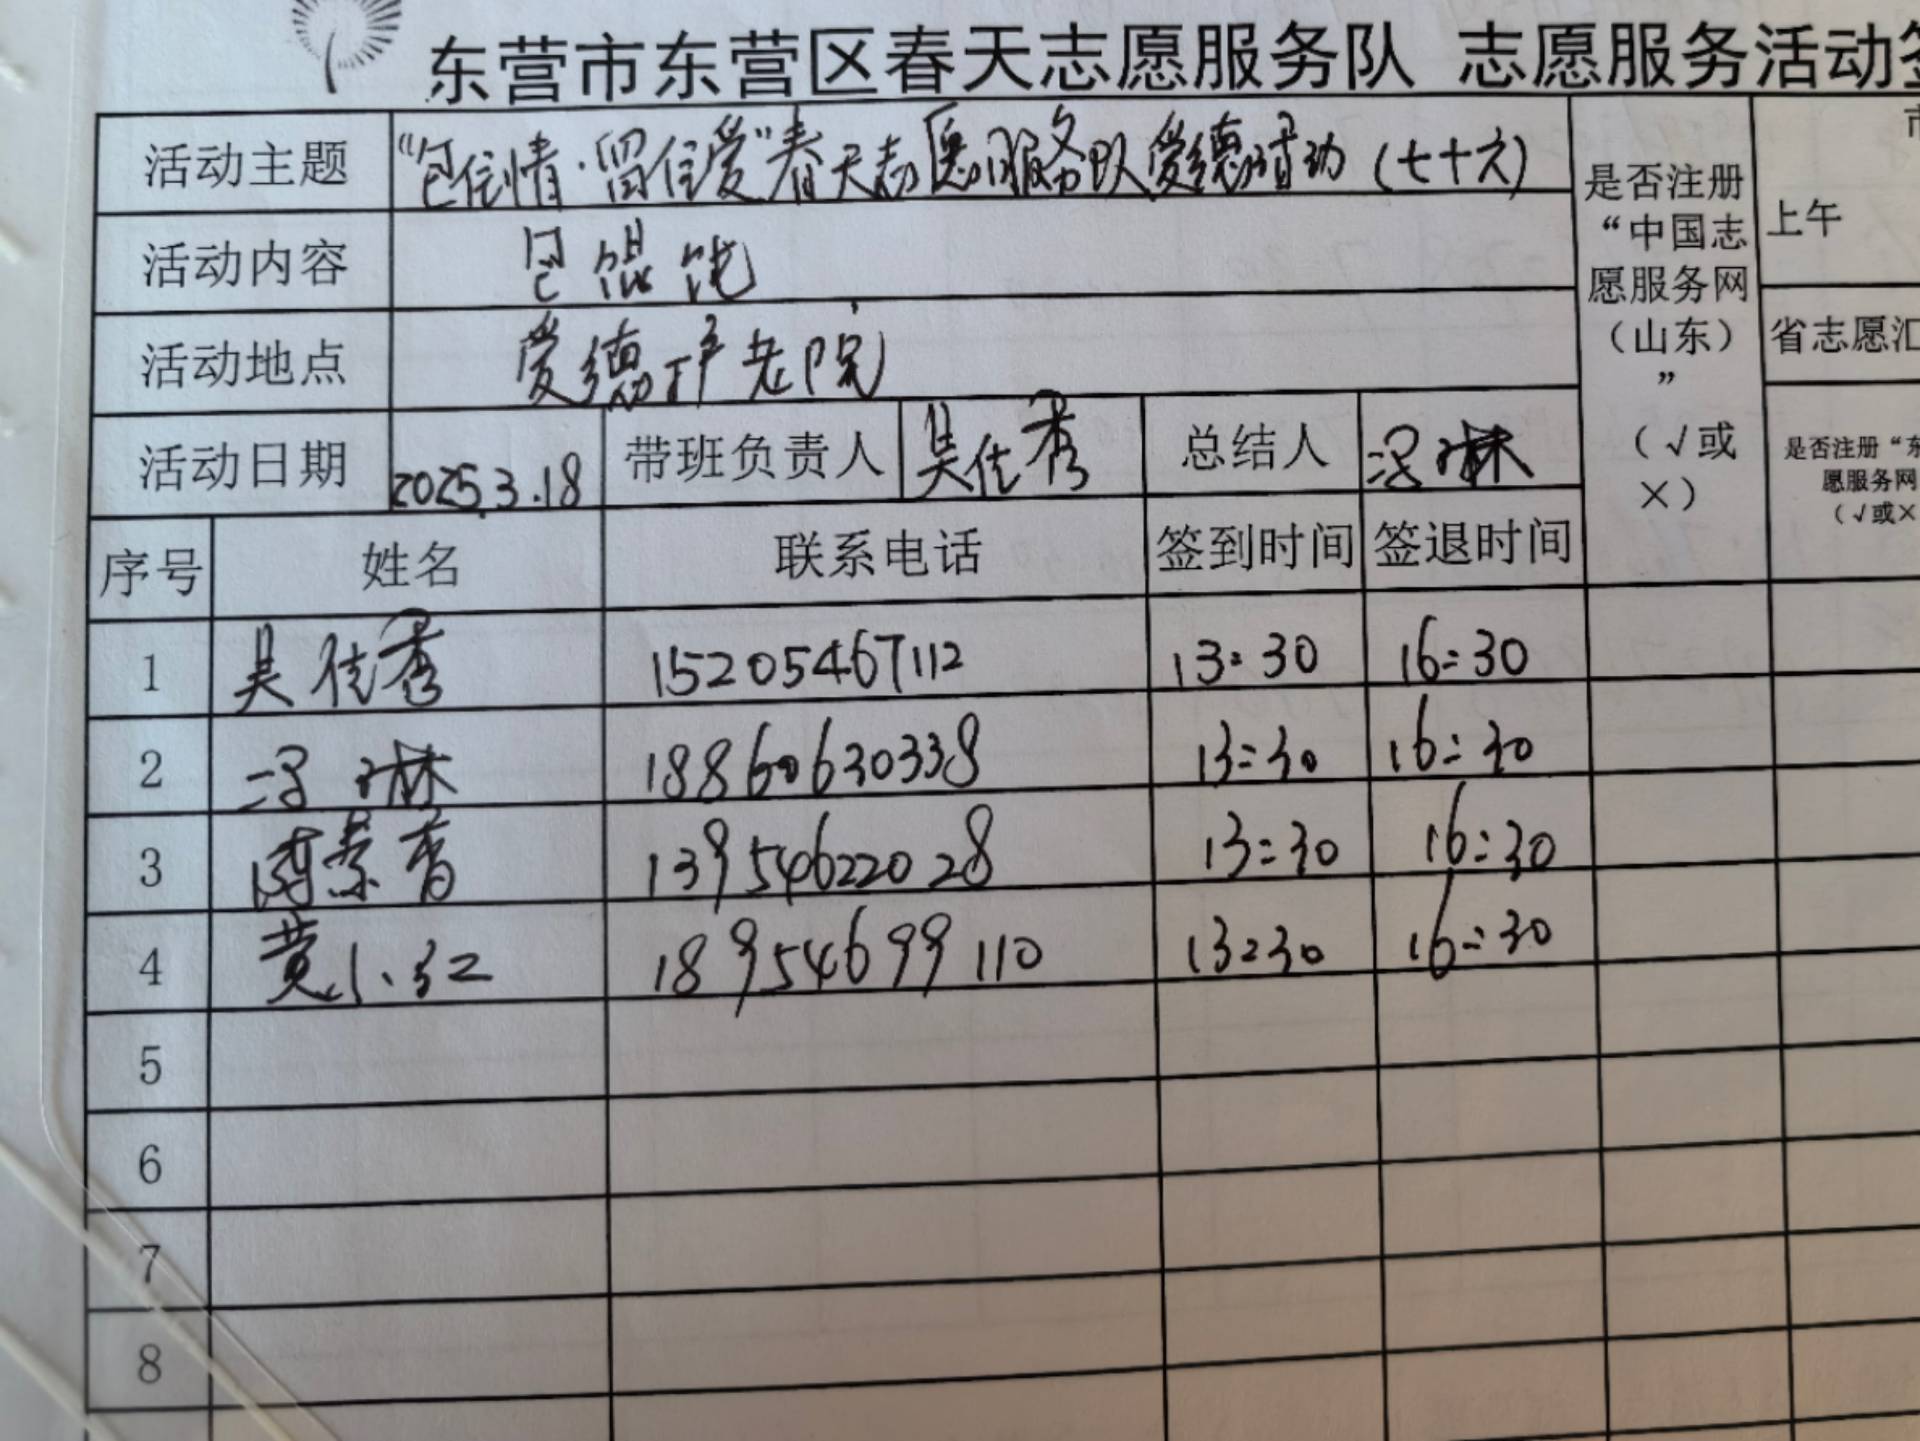 东营市东营区春天志愿服务队 志愿服务活动签
活动主题 “包住情·留住爱”春天志愿服务队爱德活动（七十六）
活动内容 包馄饨
活动地点 爱德护老院
活动日期 2025.3.18 带班负责人 吴佳秀 总结人 冯琳
是否注册“中国志愿服务网（山东）”（√或×）
上午
省志愿汇
是否注册“东
愿服务网
（√或×
序号 姓名 联系电话 签到时间 签退时间
1 吴佳秀 15205467112 13:30 16:30
2 冯琳 18860630338 13:30 16:30
3 13954622028 13:30 16:30
4 黄小红 18954699110 13:30 16:30
5
6
7
8